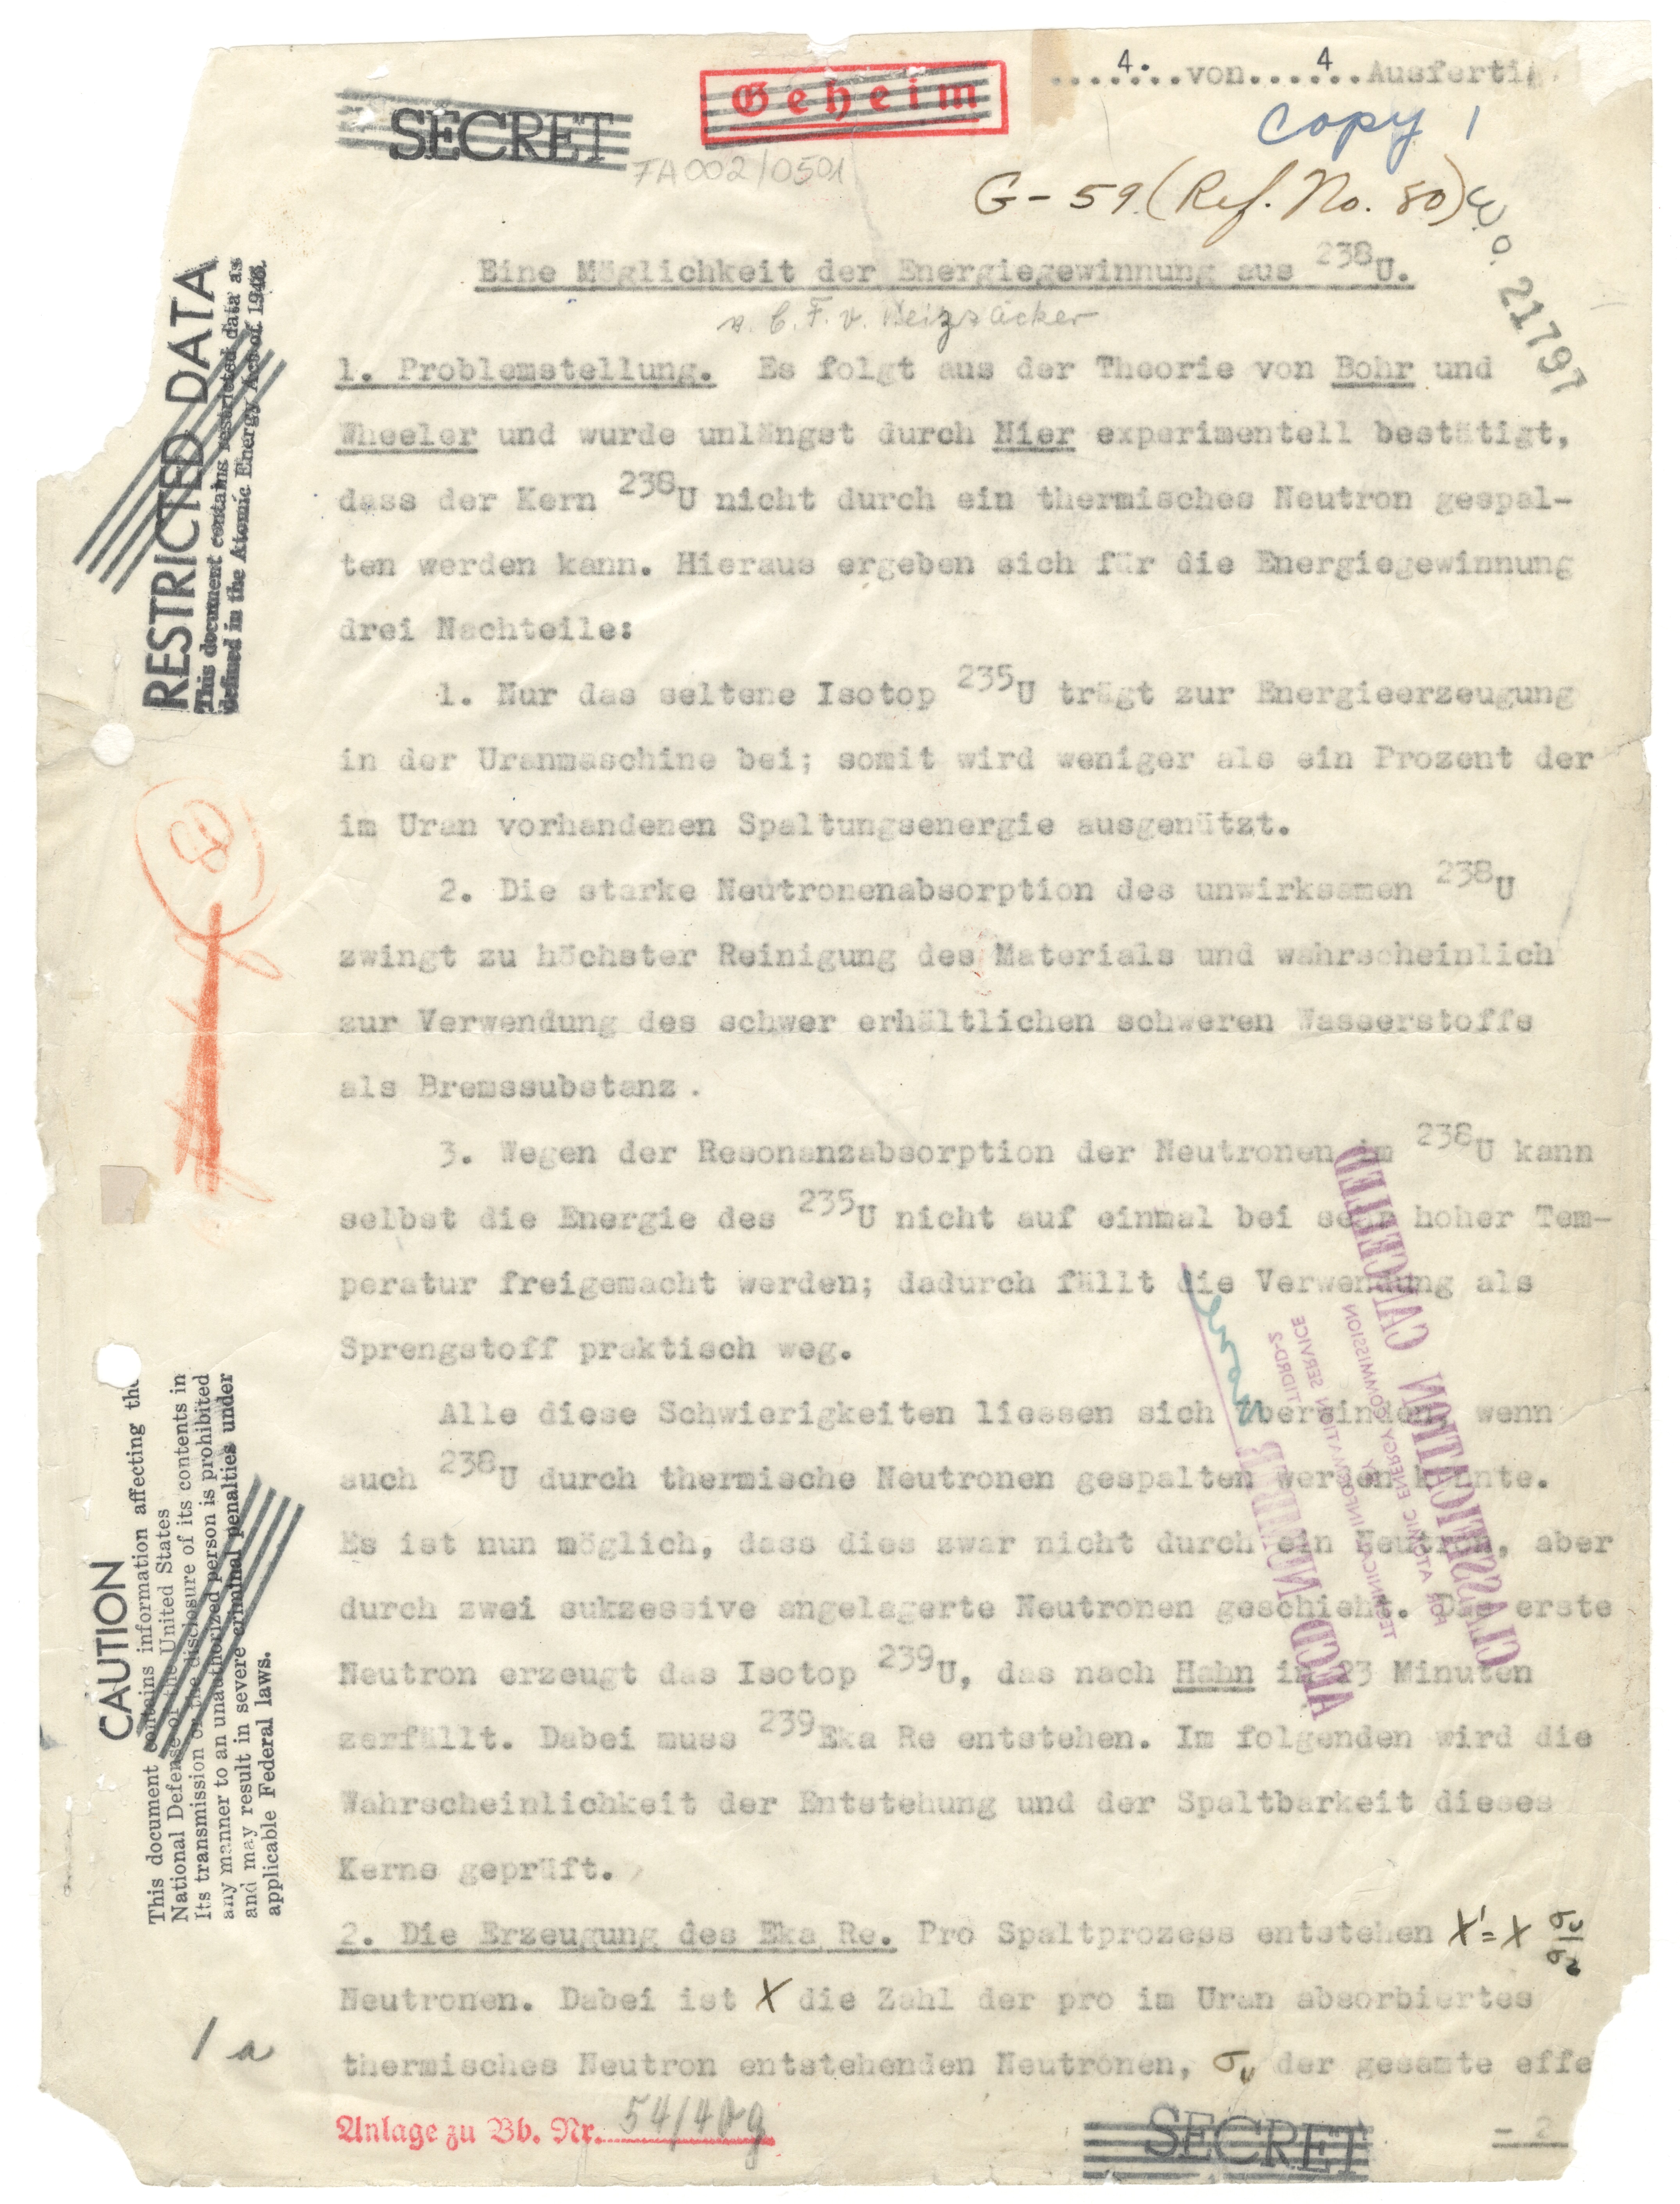 ....4...von.....4..Ausferti
Geheim
SECRET
Copy 1
7A002/0501
G-59 (Ref. No. 80)
21797
Eine Möglichkeit der Energiegewinnung aus ²³⁸U.
v. C. F. v. Weizsäcker
1. Problemstellung. Es folgt aus der Theorie von Bohr und
Wheeler und wurde unlängst durch Nier experimentell bestätigt,
dass der Kern ²³⁸U nicht durch ein thermisches Neutron gespal-
ten werden kann. Hieraus ergeben sich für die Energiegewinnung
drei Nachteile:
1. Nur das seltene Isotop ²³⁵U trägt zur Energieerzeugung
in der Uranmaschine bei; somit wird weniger als ein Prozent der
im Uran vorhandenen Spaltungsenergie ausgenützt.
2. Die starke Neutronenabsorption des unwirksamen ²³⁸U
zwingt zu höchster Reinigung des Materials und wahrscheinlich
zur Verwendung des schwer erhältlichen schweren Wasserstoffs
als Bremssubstanz.
3. Wegen der Resonanzabsorption der Neutronen im ²³⁸U kann
selbst die Energie des ²³⁵U nicht auf einmal bei sehr hoher Tem-
peratur freigemacht werden; dadurch fällt die Verwendung als
Sprengstoff praktisch weg.
Alle diese Schwierigkeiten liessen sich überwinden, wenn
auch ²³⁸U durch thermische Neutronen gespalten werden könnte.
Es ist nun möglich, dass dies zwar nicht durch ein Neutron, aber
durch zwei sukzessive angelagerte Neutronen geschieht. Das erste
Neutron erzeugt das Isotop ²³⁹U, das nach Hahn in 23 Minuten
zerfällt. Dabei muss ²³⁹Eka Re entstehen. Im folgenden wird die
Wahrscheinlichkeit der Entstehung und der Spaltbarkeit dieses
Kerns geprüft.
2. Die Erzeugung des Eka Re. Pro Spaltprozess entstehen X'=X σᵤ/σ₂
Neutronen. Dabei ist X die Zahl der pro im Uran absorbiertes
thermisches Neutron entstehenden Neutronen, σᵤ der gesamte effe
Anlage zu Bb. Nr. 54/40g
SECRET
- 2
RESTRICTED DATA
This document contains restricted data as
defined in the Atomic Energy Act of 1946.
80
CAUTION
This document contains information affecting the
National Defense of the United States
Its transmission or the disclosure of its contents in
any manner to an unauthorized person is prohibited
and may result in severe criminal penalties under
applicable Federal laws.
1 a
CLASSIFICATION CANCELLED
FOR ATOMIC ENERGY COMMISSION
TECHNICAL INFORMATION SERVICE
TIDRD-2
AECD NUMBER